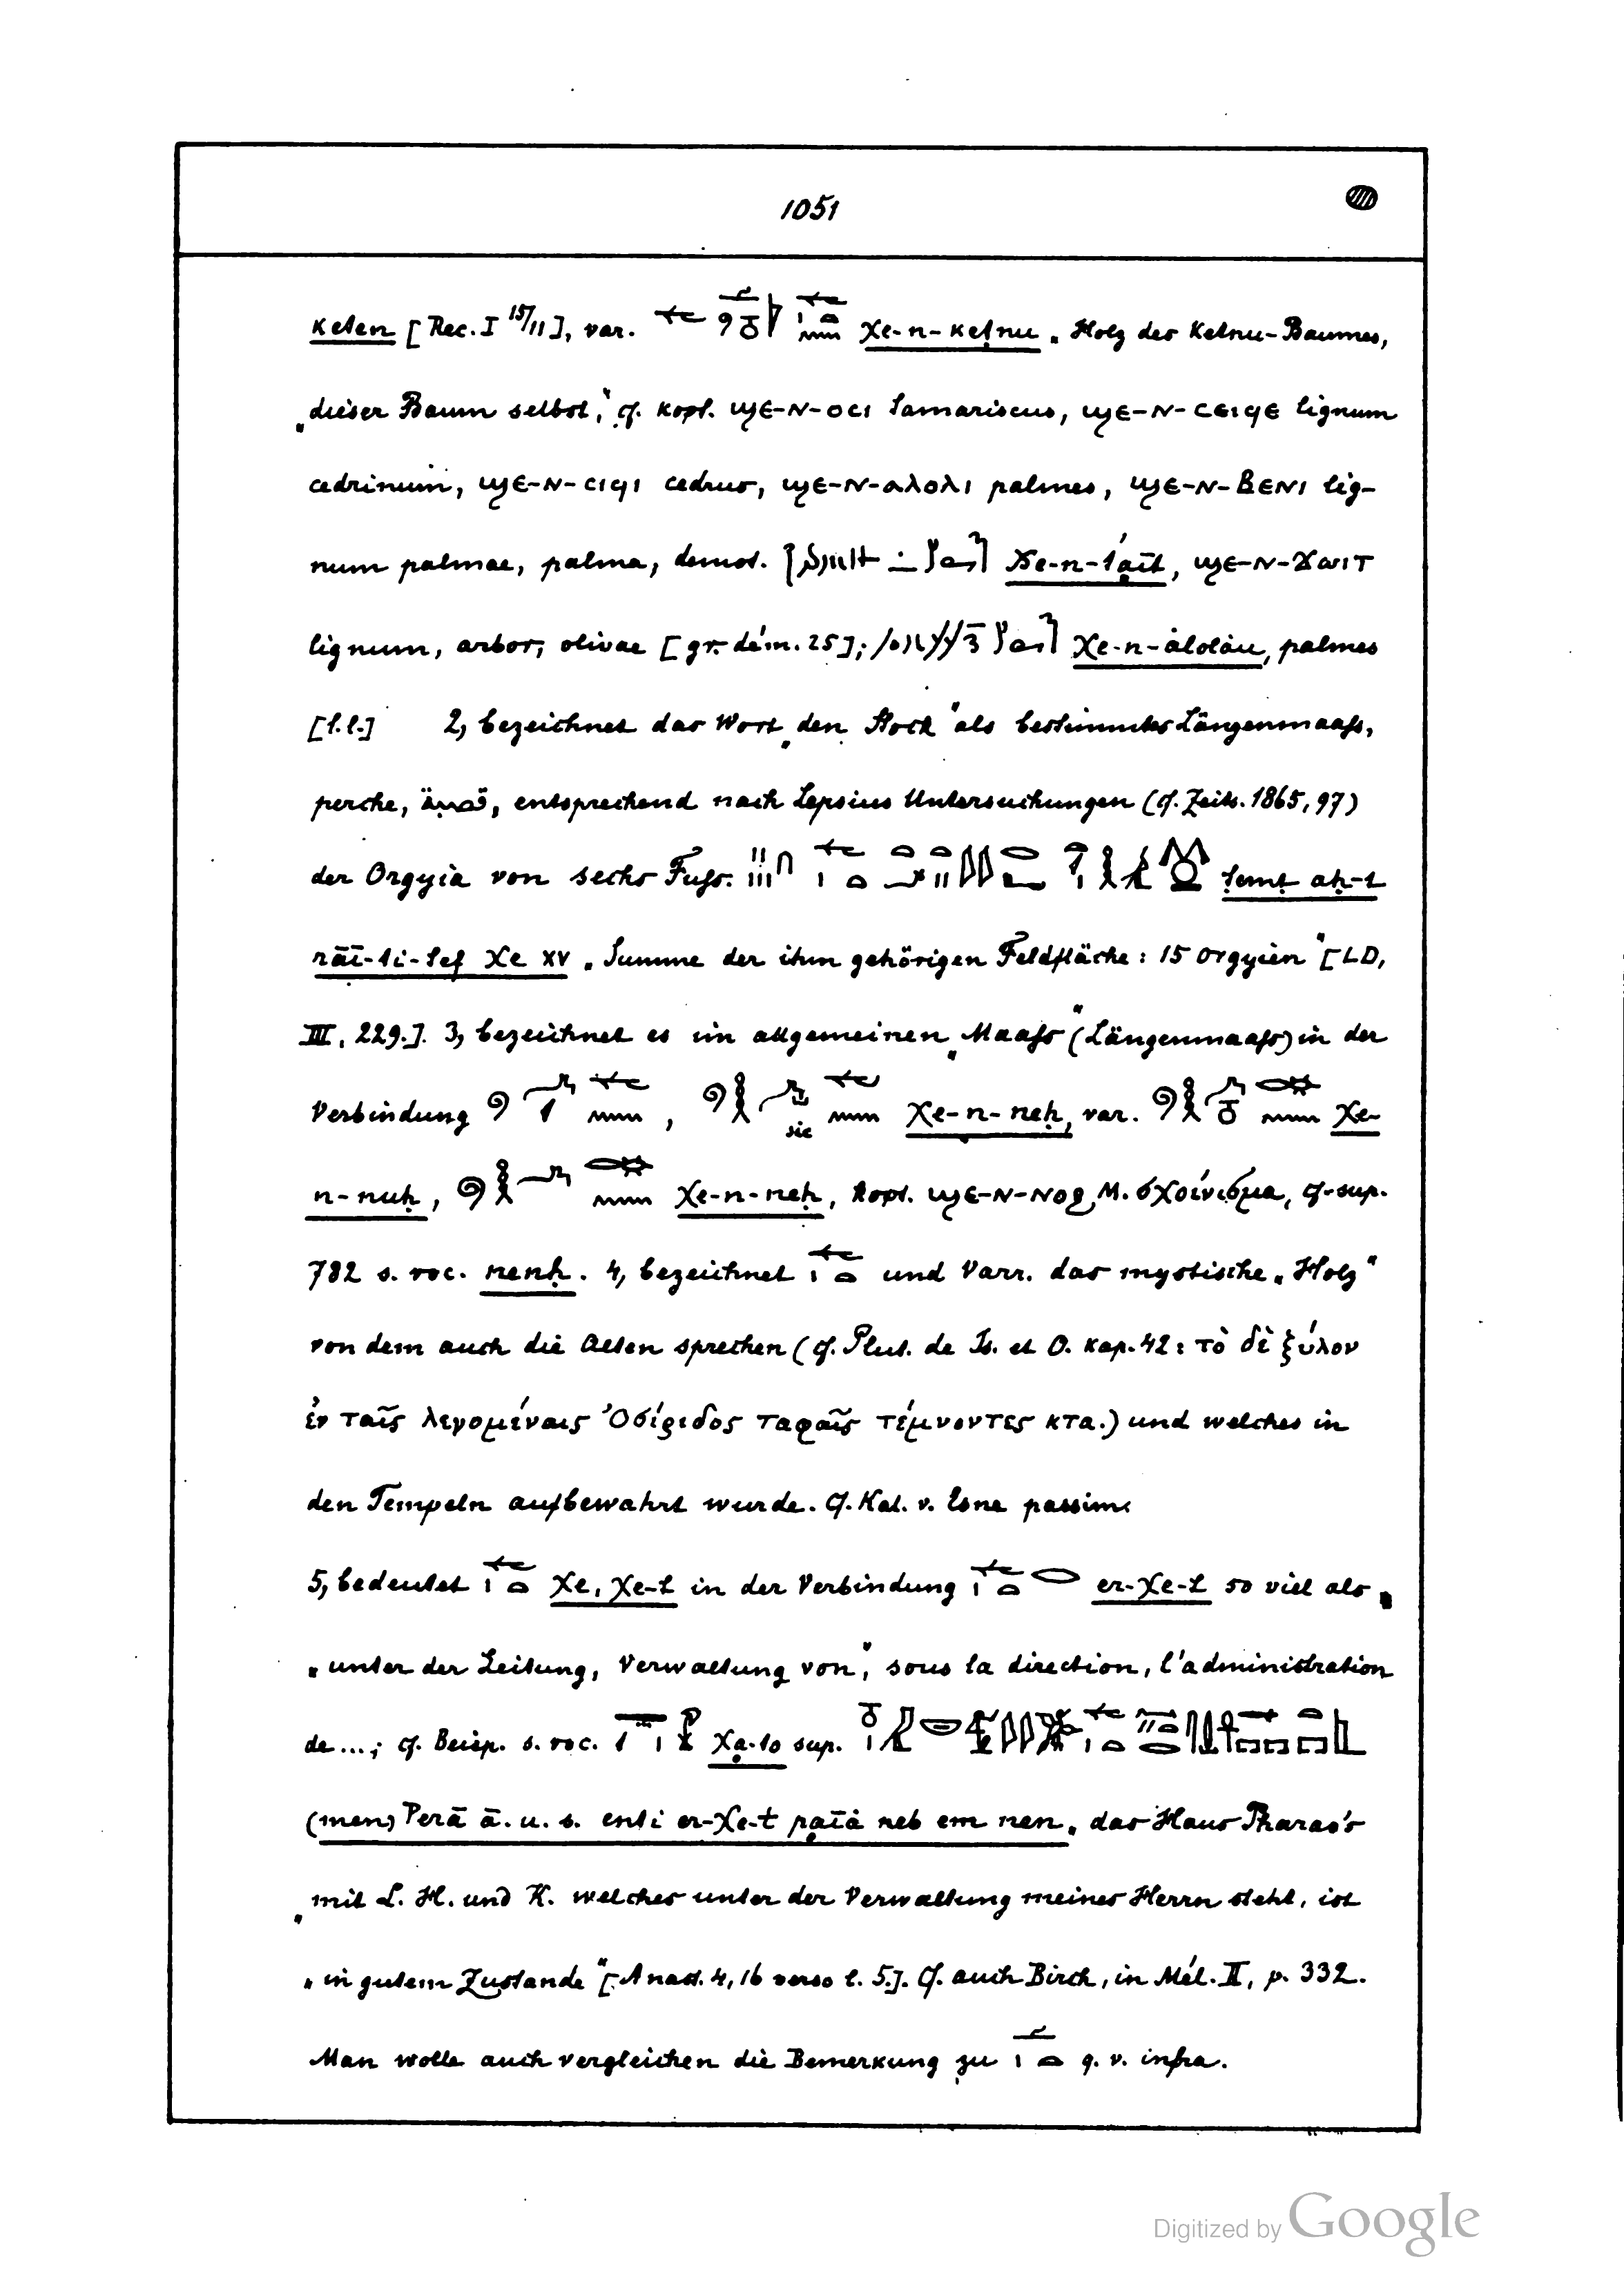 1051
keten [Rec. I 15/11], var. χe-n-ketnu „Holz des Ketnu-Baumes,
„dieser Baum selbst," cf. kopt. ϣⲉ-ⲛ-ⲟⲥⲓ tamariscus, ϣⲉ-ⲛ-ⲥⲉⲓϥⲉ lignum
cedrinum, ϣⲉ-ⲛ-ⲥⲓϥⲓ cedrus, ϣⲉ-ⲛ-ⲁⲗⲟⲗⲓ palmes, ϣⲉ-ⲛ-ⲃⲉⲛⲓ lig-
num palmae, palma, demot. χe-n-t'ait, ϣⲉ-ⲛ-ϫⲱⲓⲧ
lignum, arbor, olivae [gr. dém. 25]; χe-n-àlolàu, palmes
[l.l.] 2, bezeichnet das Wort „den Stock" als bestimmtes Längenmaaß,
perche, قصبة, entsprechend nach Lepsius Untersuchungen (cf. Zeits. 1865, 97)
der Orgyia von sechs Fuß. temt aḥ-t
rāī-ti-tef χe XV „Summe der ihm gehörigen Feldfläche: 15 Orgyien" [LD,
III, 229.]. 3, bezeichnet es im allgemeinen „Maaß" (Längenmaaß) in der
Verbindung , sic χe-n-neḥ, var. χe-
n-nuḥ, χe-n-neḥ, kopt. ϣⲉ-ⲛ-ⲛⲟϩ M. σχοίνισμα, cf. sup.
782 s. voc. nenḥ. 4, bezeichnet und Varr. das mystische „Holz"
von dem auch die Alten sprechen (cf. Plut. de Is. et O. kap. 42: τὸ δὲ ξύλον
ἐν ταῖς λεγομέναις Ὀσίριδος ταφαῖς τέμνοντες κτα.) und welches in
den Tempeln aufbewahrt wurde. Cf. Kal. v. Esne passim.
5, bedeutet χe, χe-t in der Verbindung er-χe-t so viel als „
„unter der Leitung, Verwaltung von", sous la direction, l'administration
de ...; cf. Beisp. s. voc. χa-to sup.
(men) Perā ā. u. s. enti er-χe-t paīà neb em men „das Haus Pharao's
„mit L. H. und K. welches unter der Verwaltung meines Herrn steht, ist
„in gutem Zustande" [Anast. 4, 16 verso l. 5.]. Cf. auch Birch, in Mél. II, p. 332.
Man wolle auch vergleichen die Bemerkung zu q. v. infra.
Digitized by Google